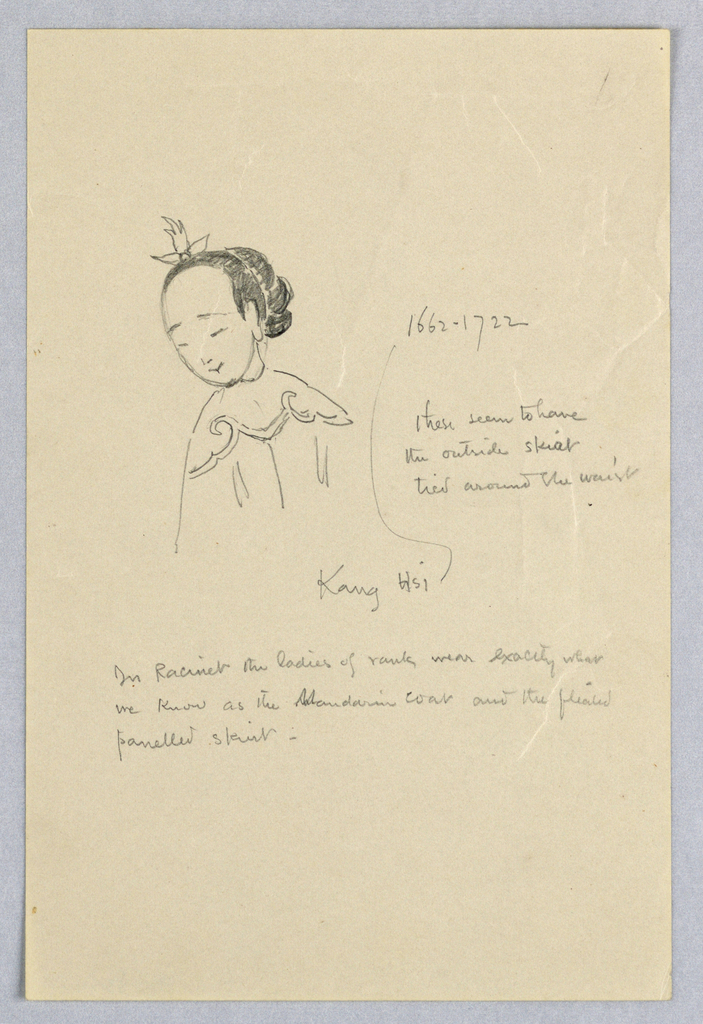 1662-1722
these seem to have
the outside skirt
tied around the waist
Kang Hsi
In Racinet the ladies of rank wear exactly what
we know as the Mandarin coat and the pleated
panelled skirt -